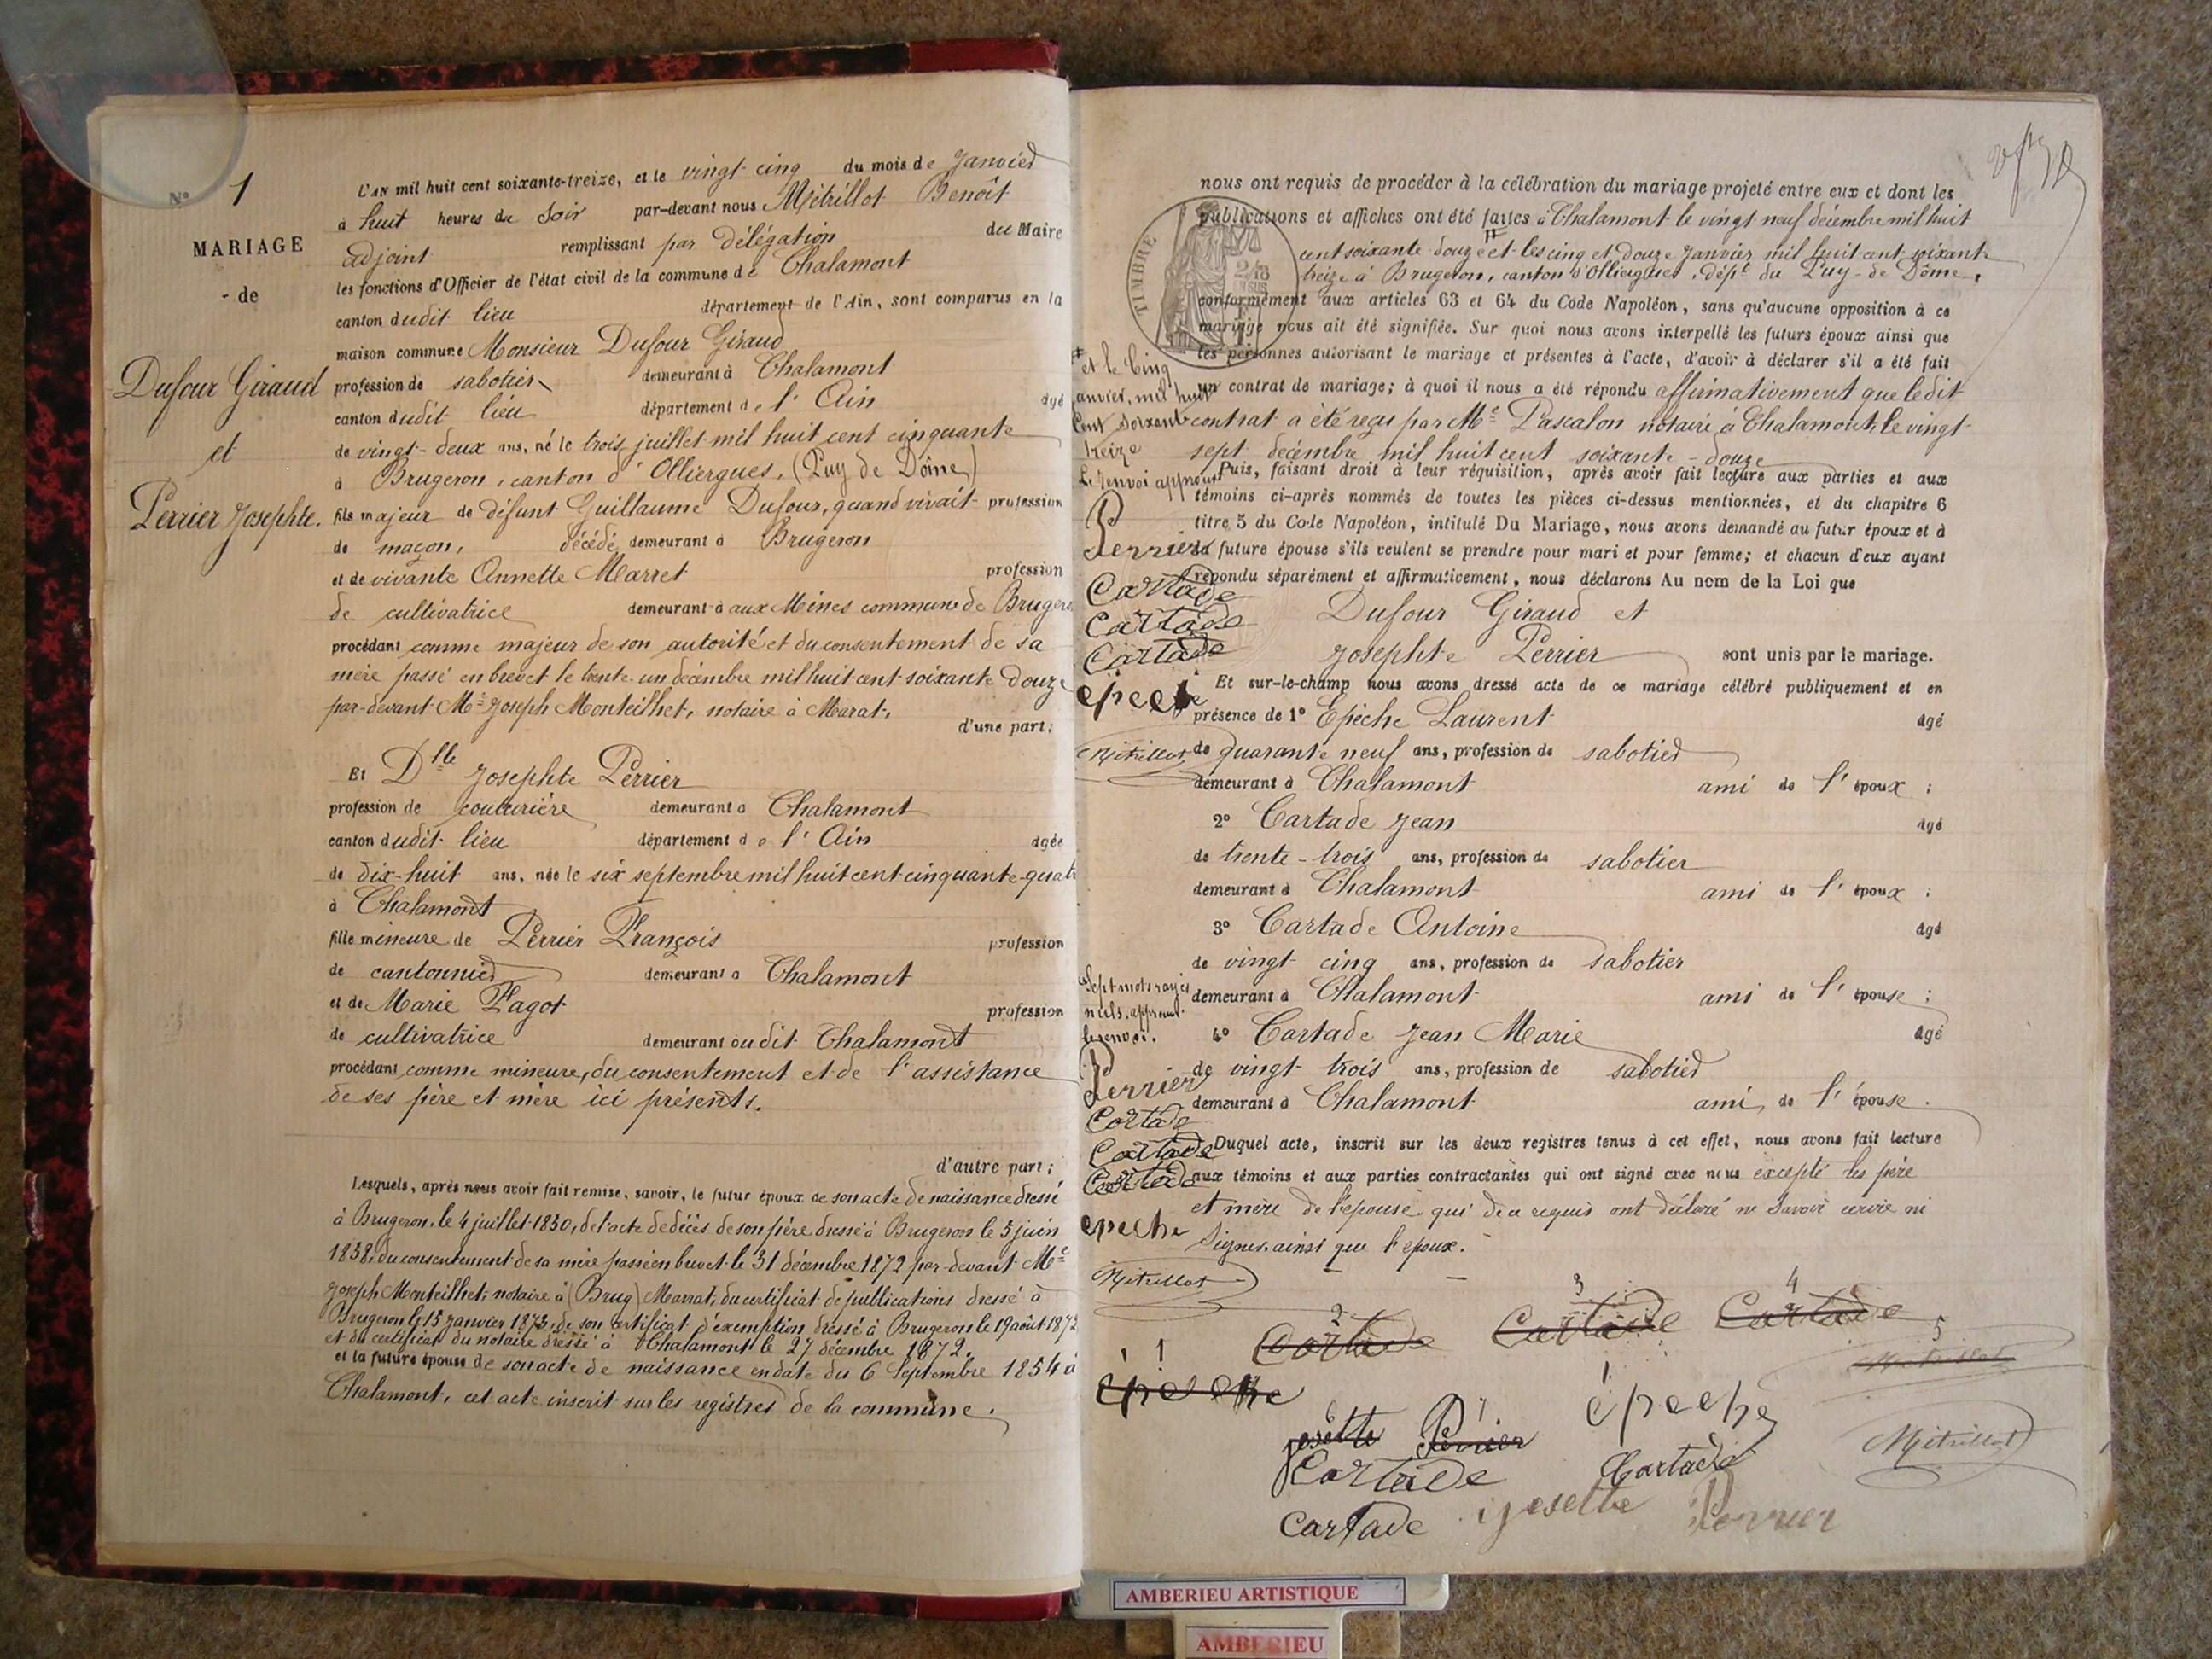 N° 1
MARIAGE
- de
Dufour Giraud
et
Perrier Josephte.
L'AN mil huit cent soixante-treize, et le vingt-cinq du mois de Janvier
à huit heures du soir par-devant nous Mitrillot Benoît
adjoint remplissant par délégation du Maire
les fonctions d'Officier de l'état civil de la commune de Chalamont
canton dudit lieu département de l'Ain, sont comparus en la
maison commune Monsieur Dufour Giraud
profession de sabotier demeurant à Chalamont
canton dudit lieu département de l'Ain âgé
de vingt-deux ans, né le trois juillet mil huit cent cinquante
à Brugeron, canton d'Olliergues, (Puy de Dôme)
fils majeur de défunt Guillaume Dufour, quand vivait profession
de maçon, décédé demeurant à Brugeron
et de vivante Annette Marret profession
de cultivatrice demeurant à aux Mines commune de Brugeron
procédant comme majeur de son autorité et du consentement de sa
mère passé en brevet le trente-un décembre mil huit cent soixante douze
par-devant Me Joseph Monteilhet, notaire à Marat,
d'une part;
Et Dlle Josephte Perrier
profession de couturière demeurant à Chalamont
canton dudit lieu département de l'Ain âgée
de dix-huit ans, née le six septembre mil huit cent cinquante-quatre
à Chalamont
fille mineure de Perrier François profession
de cantonnier demeurant à Chalamont
et de Marie Pagot profession
de cultivatrice demeurant audit Chalamont
procédant comme mineure, du consentement et de l'assistance
de ses père et mère ici présents.
d'autre part;
Lesquels, après nous avoir fait remise, savoir, le futur époux de son acte de naissance dressé
à Brugeron, le 4 juillet 1850, de l'acte de décès de son père dressé à Brugeron le 5 juin
1858, du consentement de sa mère passé en brevet le 31 décembre 1872 par-devant Me
Joseph Monteilhet, notaire à (Brug) Marrat, du certificat de publications dressé à
Brugeron le 15 Janvier 1873, de son certificat d'exemption dressé à Brugeron le 19 août 1872
et du certificat du notaire dressé à Chalamont le 27 décembre 1872.
et la future épouse de son acte de naissance en date du 6 Septembre 1854 à
Chalamont, cet acte inscrit sur les registres de la commune.
nous ont requis de procéder à la célébration du mariage projeté entre eux et dont les
publications et affiches ont été faites à Chalamont le vingt neuf décembre mil huit
cent soixante douze # et les cinq et douze Janvier mil huit cent soixante
treize à Brugeron, canton d'Olliergues, dépt du Puy-de-Dôme,
TIMBRE
conformément aux articles 63 et 64 du Code Napoléon, sans qu'aucune opposition à ce
mariage nous ait été signifiée. Sur quoi nous avons interpellé les futurs époux ainsi que
les personnes autorisant le mariage et présentes à l'acte, d'avoir à déclarer s'il a été fait
un contrat de mariage; à quoi il nous a été répondu affirmativement que ledit
contrat a été reçu par Me Pascalon notaire à Chalamont, le vingt-
sept décembre mil huit cent soixante-douze
Puis, faisant droit à leur réquisition, après avoir fait lecture aux parties et aux
témoins ci-après nommés de toutes les pièces ci-dessus mentionnées, et du chapitre 6
titre 5 du Code Napoléon, intitulé Du Mariage, nous avons demandé au futur époux et à
la future épouse s'ils veulent se prendre pour mari et pour femme; et chacun d'eux ayant
répondu séparément et affirmativement, nous déclarons Au nom de la Loi que
Dufour Giraud et
Josephte Perrier sont unis par le mariage.
Et sur-le-champ nous avons dressé acte de ce mariage célébré publiquement et en
présence de 1° Epèche Laurent âgé
de quarante neuf ans, profession de sabotier
demeurant à Chalamont ami de l'époux ;
2° Cartade Jean âgé
de trente-trois ans, profession de sabotier
demeurant à Chalamont ami de l'époux ;
3° Cartade Antoine âgé
de vingt cinq ans, profession de sabotier
demeurant à Chalamont ami de l'épouse ;
4° Cartade Jean Marie âgé
de vingt trois ans, profession de sabotier
demeurant à Chalamont ami de l'épouse.
Duquel acte, inscrit sur les deux registres tenus à cet effet, nous avons fait lecture
aux témoins et aux parties contractantes qui ont signé avec nous excepté les père
et mère de l'épouse qui de ce requis ont déclaré ne savoir écrire ni
signer, ainsi que l'époux.
# et le Cinq
Janvier, mil huit
Cent soixante
treize
Le renvoi approuvé
Perrier
Cartade
Cartade
Cartade
epeche
Mitrillot
Sept mots rayés
nuls, approuvé
le renvoi.
Perrier
Cartade
Cartade
Cartade
epeche
Mitrillot
1 2 3 4 5
epeche Cartade Cartade Cartade Mitrillot
6 7
josette Perrier epeche
Cartade Cartade Mitrillot
Cartade josette Perrier
AMBERIEU ARTISTIQUE
AMBERIEU